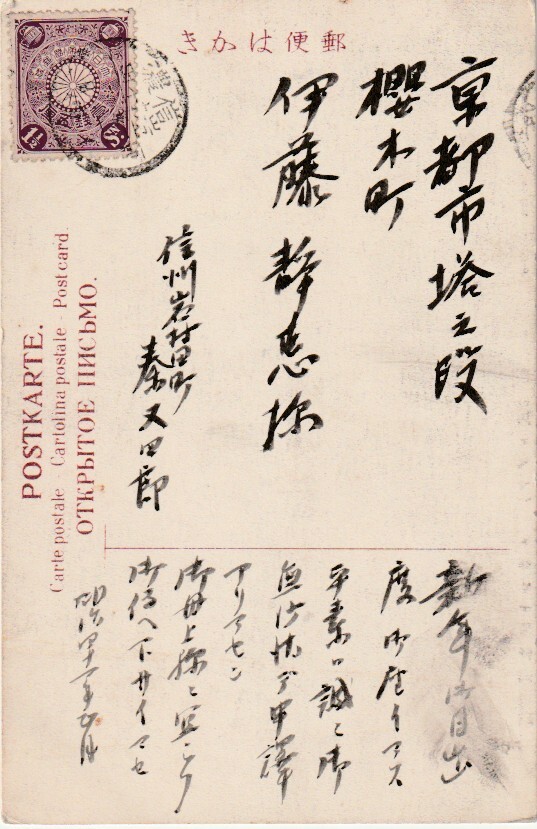 郵便はかき
京都市塔之段
櫻木町
伊藤静恵様
信州岩村田町
秦又四郎
POSTKARTE.
Carte postale - Cartolina postale - Post card.
ОТКРЫТОЕ ПИСЬМО.
1½ Sn.
新年御目出
度御座イマス
平素ハ誠ニ御
無沙汰デ申譯
アリマセン
御母上様ニ宜シク
御傳ヘ下サイマセ
明治四十一年正月